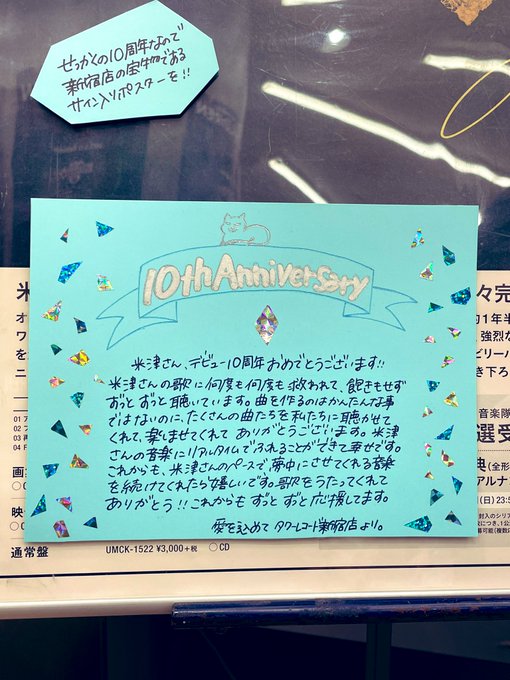 せっかくの10周年なので
新宿店の宝物である
サイン入りポスターを!!
10th Anniversary
米津さん、デビュー10周年おめでとうございます!!
米津さんの歌に何度も何度も救われて、飽きもせず
ずっとずっと聴いています。曲を作るのはかんたんな事
ではないのに、たくさんの曲たちを私たちに聴かせて
くれて、楽しませてくれてありがとうございます。米津
さんの音楽にリアルタイムでふれることができて幸せです。
これからも、米津さんのペースで、夢中にさせてくれる音楽
を続けてくれたら嬉しいです。歌をうたってくれて
ありがとう!!これからもずっとずっと応援してます。
愛を込めて タワーレコード新宿店より。
通常盤 UMCK-1522 ¥3,000+税 〇CD